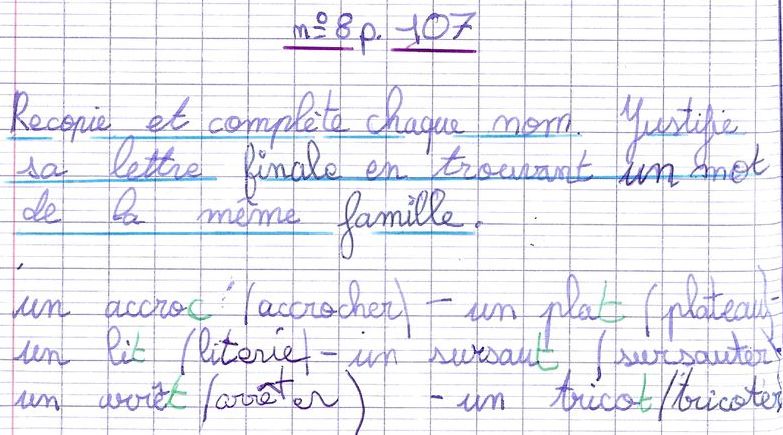 n°8 p. 107
Recopie et complète chaque nom. Justifie
sa lettre finale en trouvant un mot
de la même famille.
un accroc (accrocher) - un plat (plateau) -
un lit (literie) - un sursaut (sursauter) -
un arrêt (arrêter) - un tricot (tricoter)